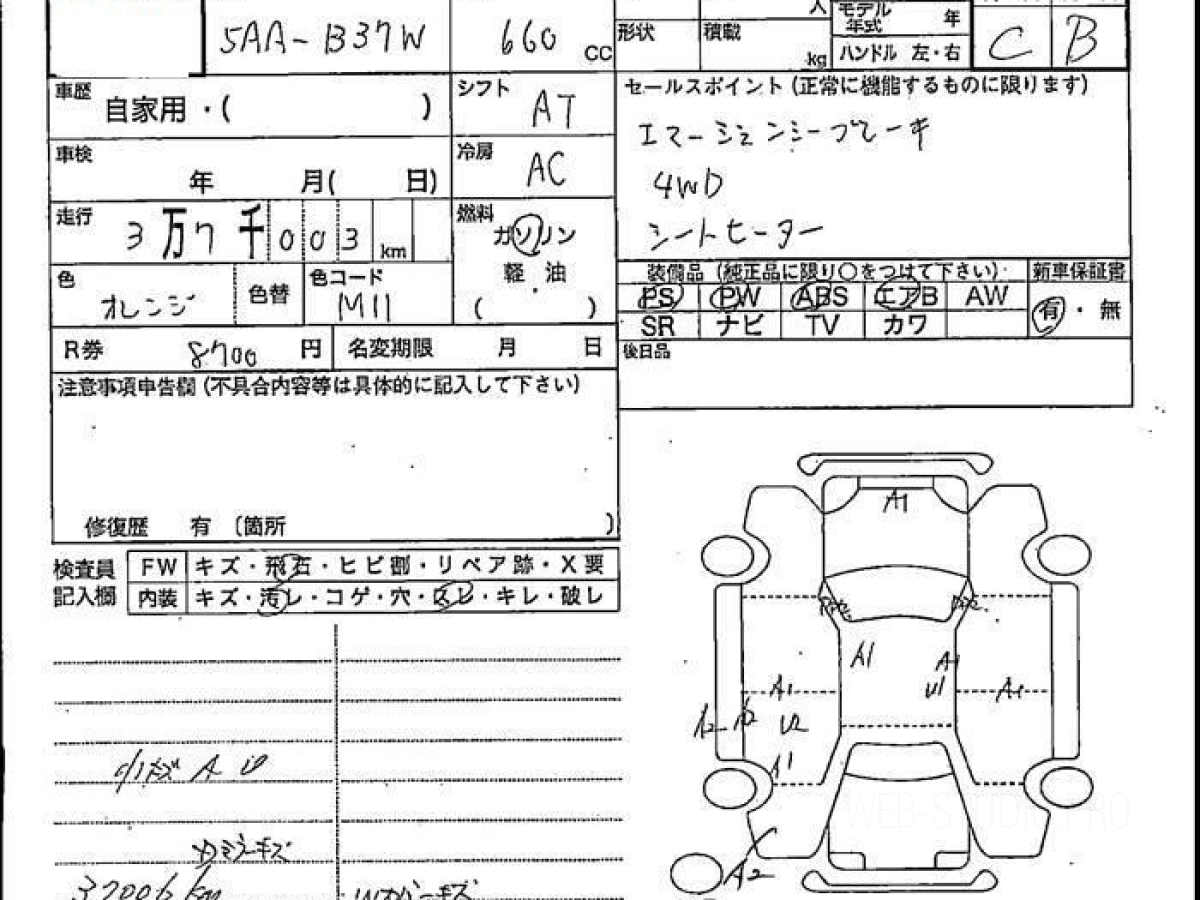 5AA-B37W 660 CC
人 モデル年式 年
形状 積載 kg ハンドル 左・右 C B
車歴 自家用・( )
シフト AT
セールスポイント(正常に機能するものに限ります)
エマージェンシーブレーキ
4WD
シートヒーター
車検 年 月( 日)
冷房 AC
走行 3万7千003km
燃料 ガソリン
軽油
( )
色 オレンジ 色替 色コード M11
装備品(純正品に限り〇をつけて下さい) 新車保証書
PS PW ABS エアB AW 有・無
SR ナビ TV カワ
R券 8700 円 名変期限 月 日
後日品
注意事項申告欄(不具合内容等は具体的に記入して下さい)
修復歴 有 〔箇所 )
検査員記入欄
FW キズ・飛石・ヒビ割・リペア跡・X要
内装 キズ・汚レ・コゲ・穴・スレ・キレ・破レ
A1
A1 A1
U1
A1 A1
A2 U2
A1
小キズ A U
ミラーキズ
A2
37006km
Wカバーキズ
WEB-STUDIO.PRO